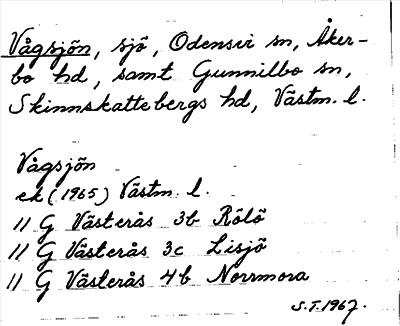 Vågsjön, sjö, Odensvi sn, Åker-
bo hd, samt Gunnilbo sn,
Skinnskattebergs hd, Västm. l.
Vågsjön
ek (1965) Västm. l.
11 G Västerås 3b Rölö
11 G Västerås 3c Lisjö
11 G Västerås 4b Norrmora
S.T. 1967.